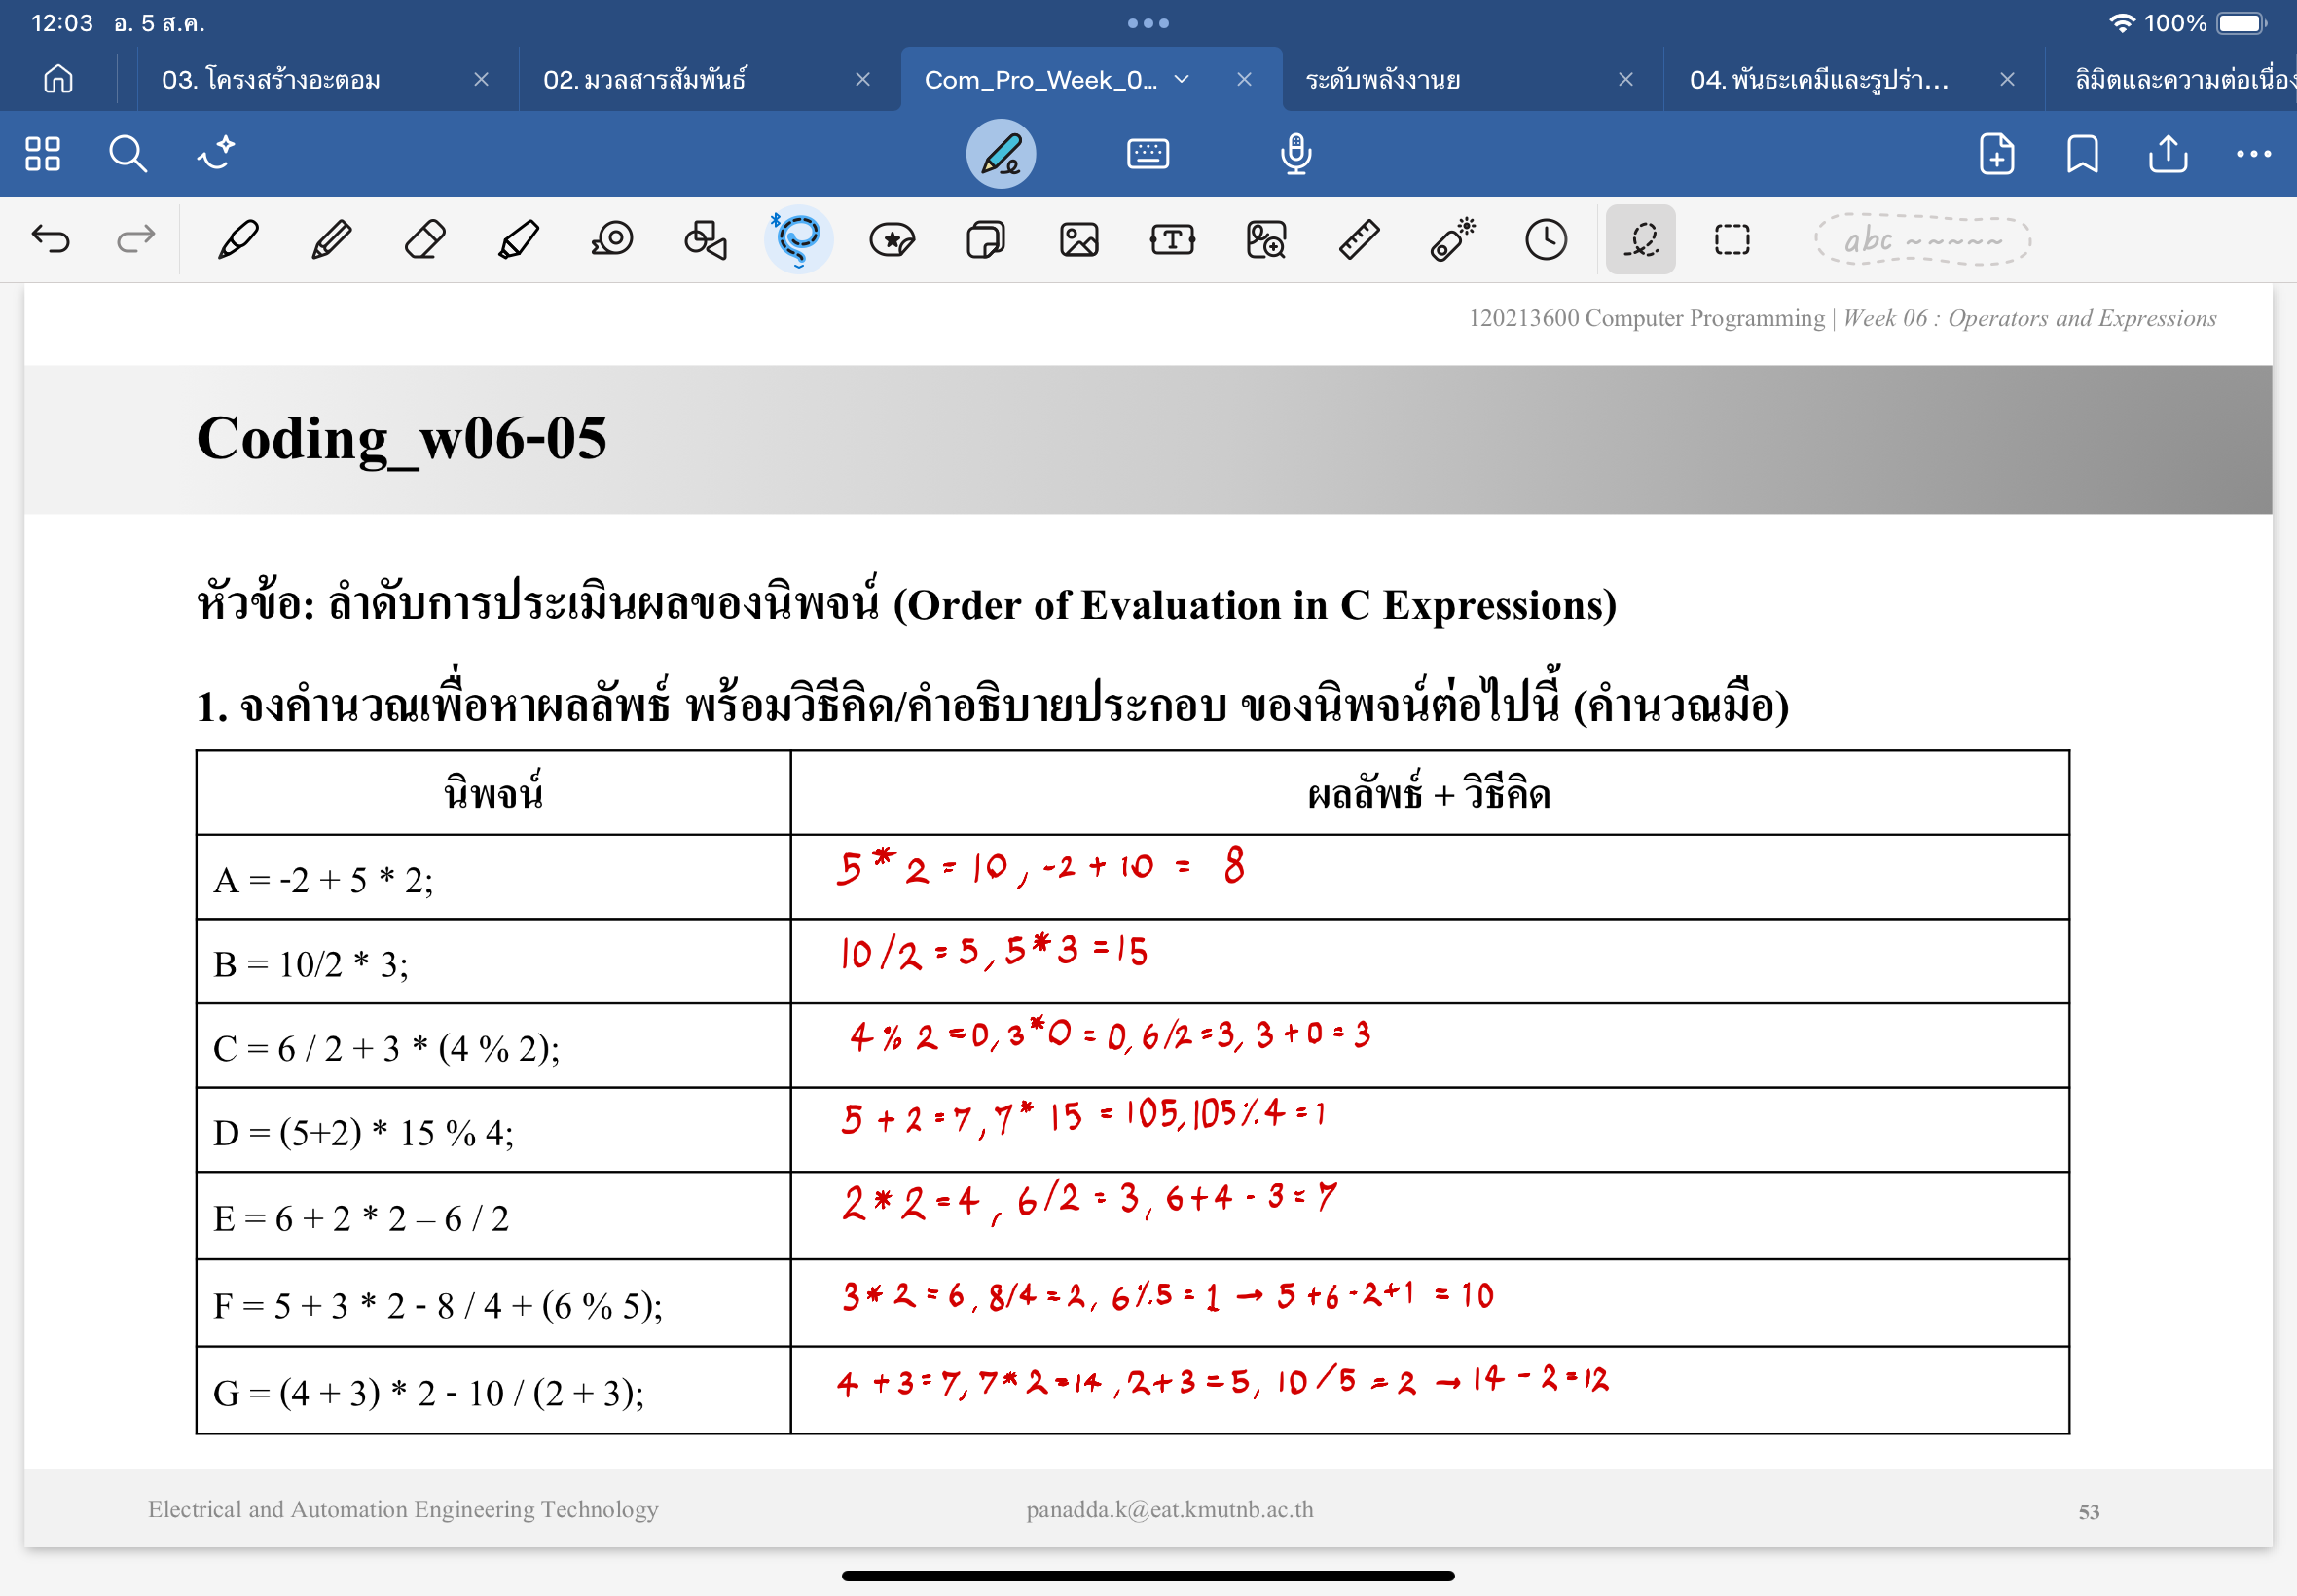 12:03 อ. 5 ส.ค. 100%
03. โครงสร้างอะตอม 02. มวลสารสัมพันธ์ Com_Pro_Week_0... ระดับพลังงานย 04. พันธะเคมีและรูปร่า... ลิมิตและความต่อเนื่อง
abc
120213600 Computer Programming | Week 06 : Operators and Expressions
Coding_w06-05
หัวข้อ: ลำดับการประเมินผลของนิพจน์ (Order of Evaluation in C Expressions)
1. จงคำนวณเพื่อหาผลลัพธ์ พร้อมวิธีคิด/คำอธิบายประกอบ ของนิพจน์ต่อไปนี้ (คำนวณมือ)
นิพจน์ ผลลัพธ์ + วิธีคิด
A = -2 + 5 * 2; 5 * 2 = 10, -2 + 10 = 8
B = 10/2 * 3; 10/2 = 5, 5*3 = 15
C = 6 / 2 + 3 * (4 % 2); 4 % 2 = 0, 3*0 = 0, 6/2 = 3, 3 + 0 = 3
D = (5+2) * 15 % 4; 5 + 2 = 7, 7* 15 = 105, 105 % 4 = 1
E = 6 + 2 * 2 – 6 / 2 2 * 2 = 4, 6/2 = 3, 6+4 - 3 = 7
F = 5 + 3 * 2 - 8 / 4 + (6 % 5); 3 * 2 = 6, 8/4 = 2, 6 % 5 = 1 → 5 +6 -2+1 = 10
G = (4 + 3) * 2 - 10 / (2 + 3); 4 + 3 = 7, 7* 2 = 14, 2+3 = 5, 10/5 = 2 → 14 - 2 = 12
Electrical and Automation Engineering Technology panadda.k@eat.kmutnb.ac.th 53